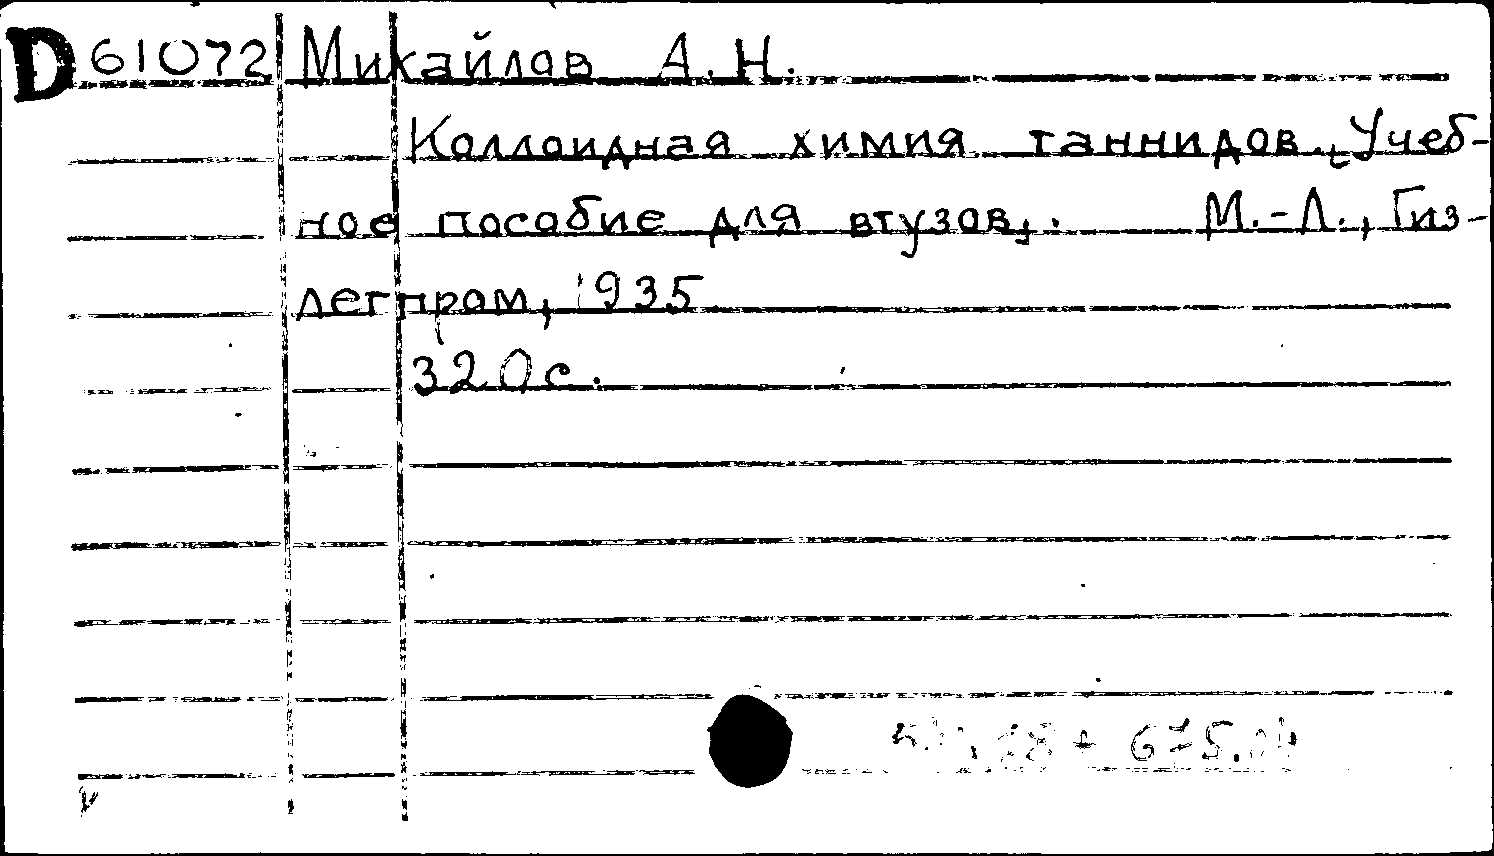 D 61072 Михайлов А.Н.
Коллоидная химия таннидов. Учеб-
ное пособие для втузов,. М.-Л., Гиз-
легпром, 1935
320 с.